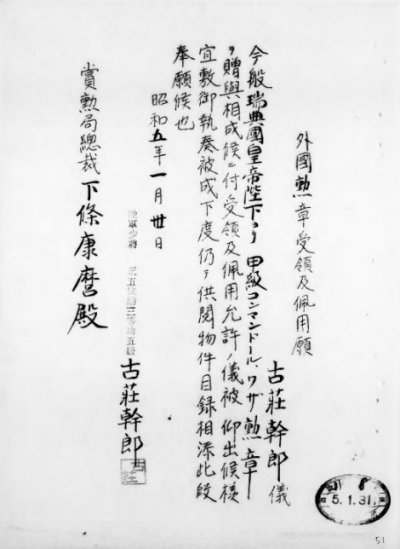 外國勲章受領及佩用願
古莊幹郎儀
今般瑞典國皇帝陛下ヨリ甲級コンマンドール、ワザ勲章
ヲ贈與相成候ニ付受領及佩用允許ノ儀被仰出候様
宜敷御執奏被成下度仍テ供閲物件目録相添此段
奉願候也
昭和五年一月廿日
陸軍少將 正五位勲三等功五級 古莊幹郎
賞勲局總裁下條康麿殿
5.1.31.
51